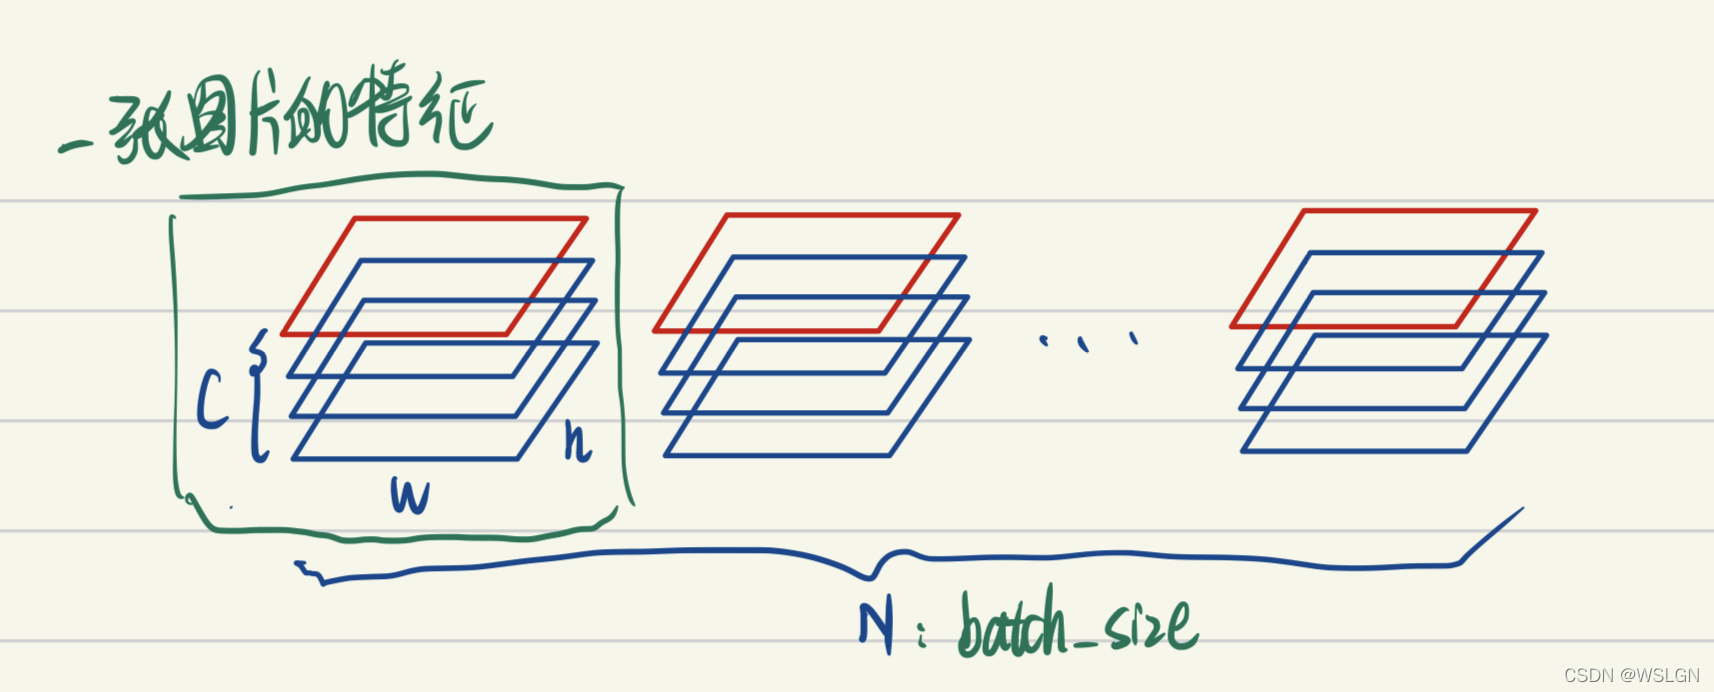 一张图片的特征
C
h
W
N: batch_size
CSDN @WSLGN